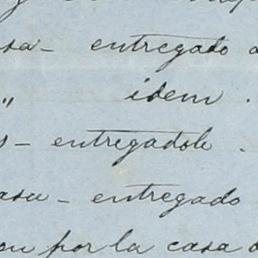 asa — entregado a
„ idem .
s — entregadole .
asa — entregado
ou por la casa d